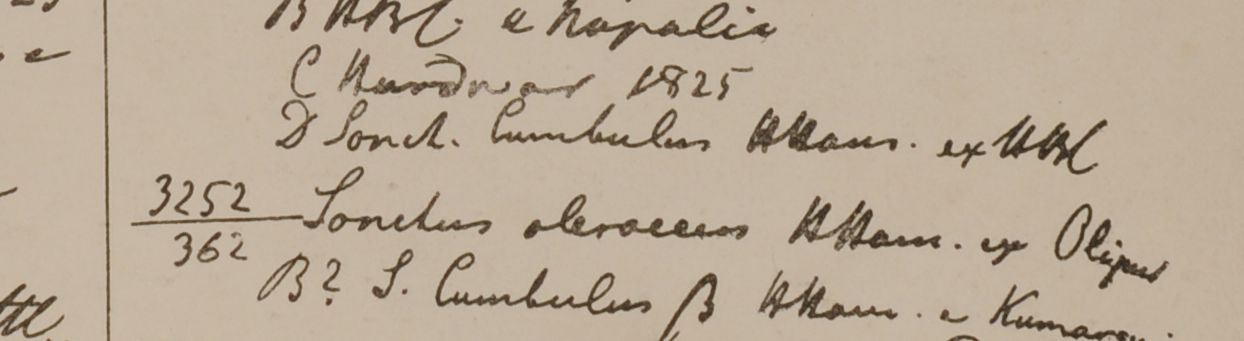 B HBC. e Napalia
C Hurdwar 1825
D Sonch. Cumbulus HHam. ex HBC
3252 Sonchus oleraceus HHam. ex Olipur
362
B? S. Cumbulus β HHam. e